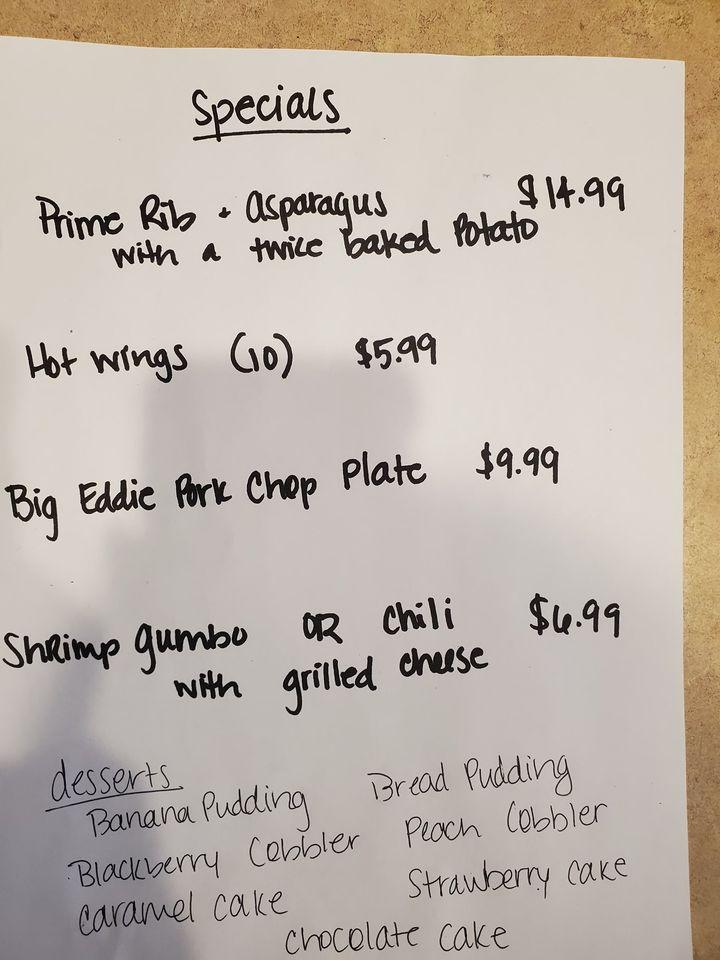 Specials
Prime Rib + Asparagus $14.99
with a twice baked Potato
Hot wings (10) $5.99
Big Eddie Pork Chop Plate $9.99
Shrimp gumbo OR Chili $6.99
with grilled cheese
desserts
Banana Pudding Bread Pudding
Blackberry Cobbler Peach Cobbler
Caramel cake Strawberry cake
Chocolate cake